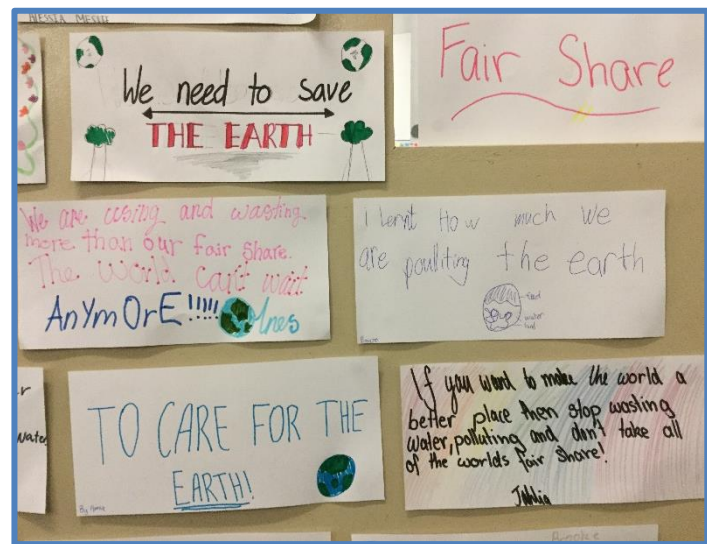 ALESSIA
We need to save
THE EARTH
Fair Share
We are using and wasting
more than our fair share.
The world can't wait
AnYmOrE!!!!!
Ines
I lernt How much we
are pouliting the earth
land
water
TO CARE FOR THE
EARTH!
By
If you want to make the world a
better place then stop wasting
water, polluting and don't take all
of the worlds fair share!
Julia
water